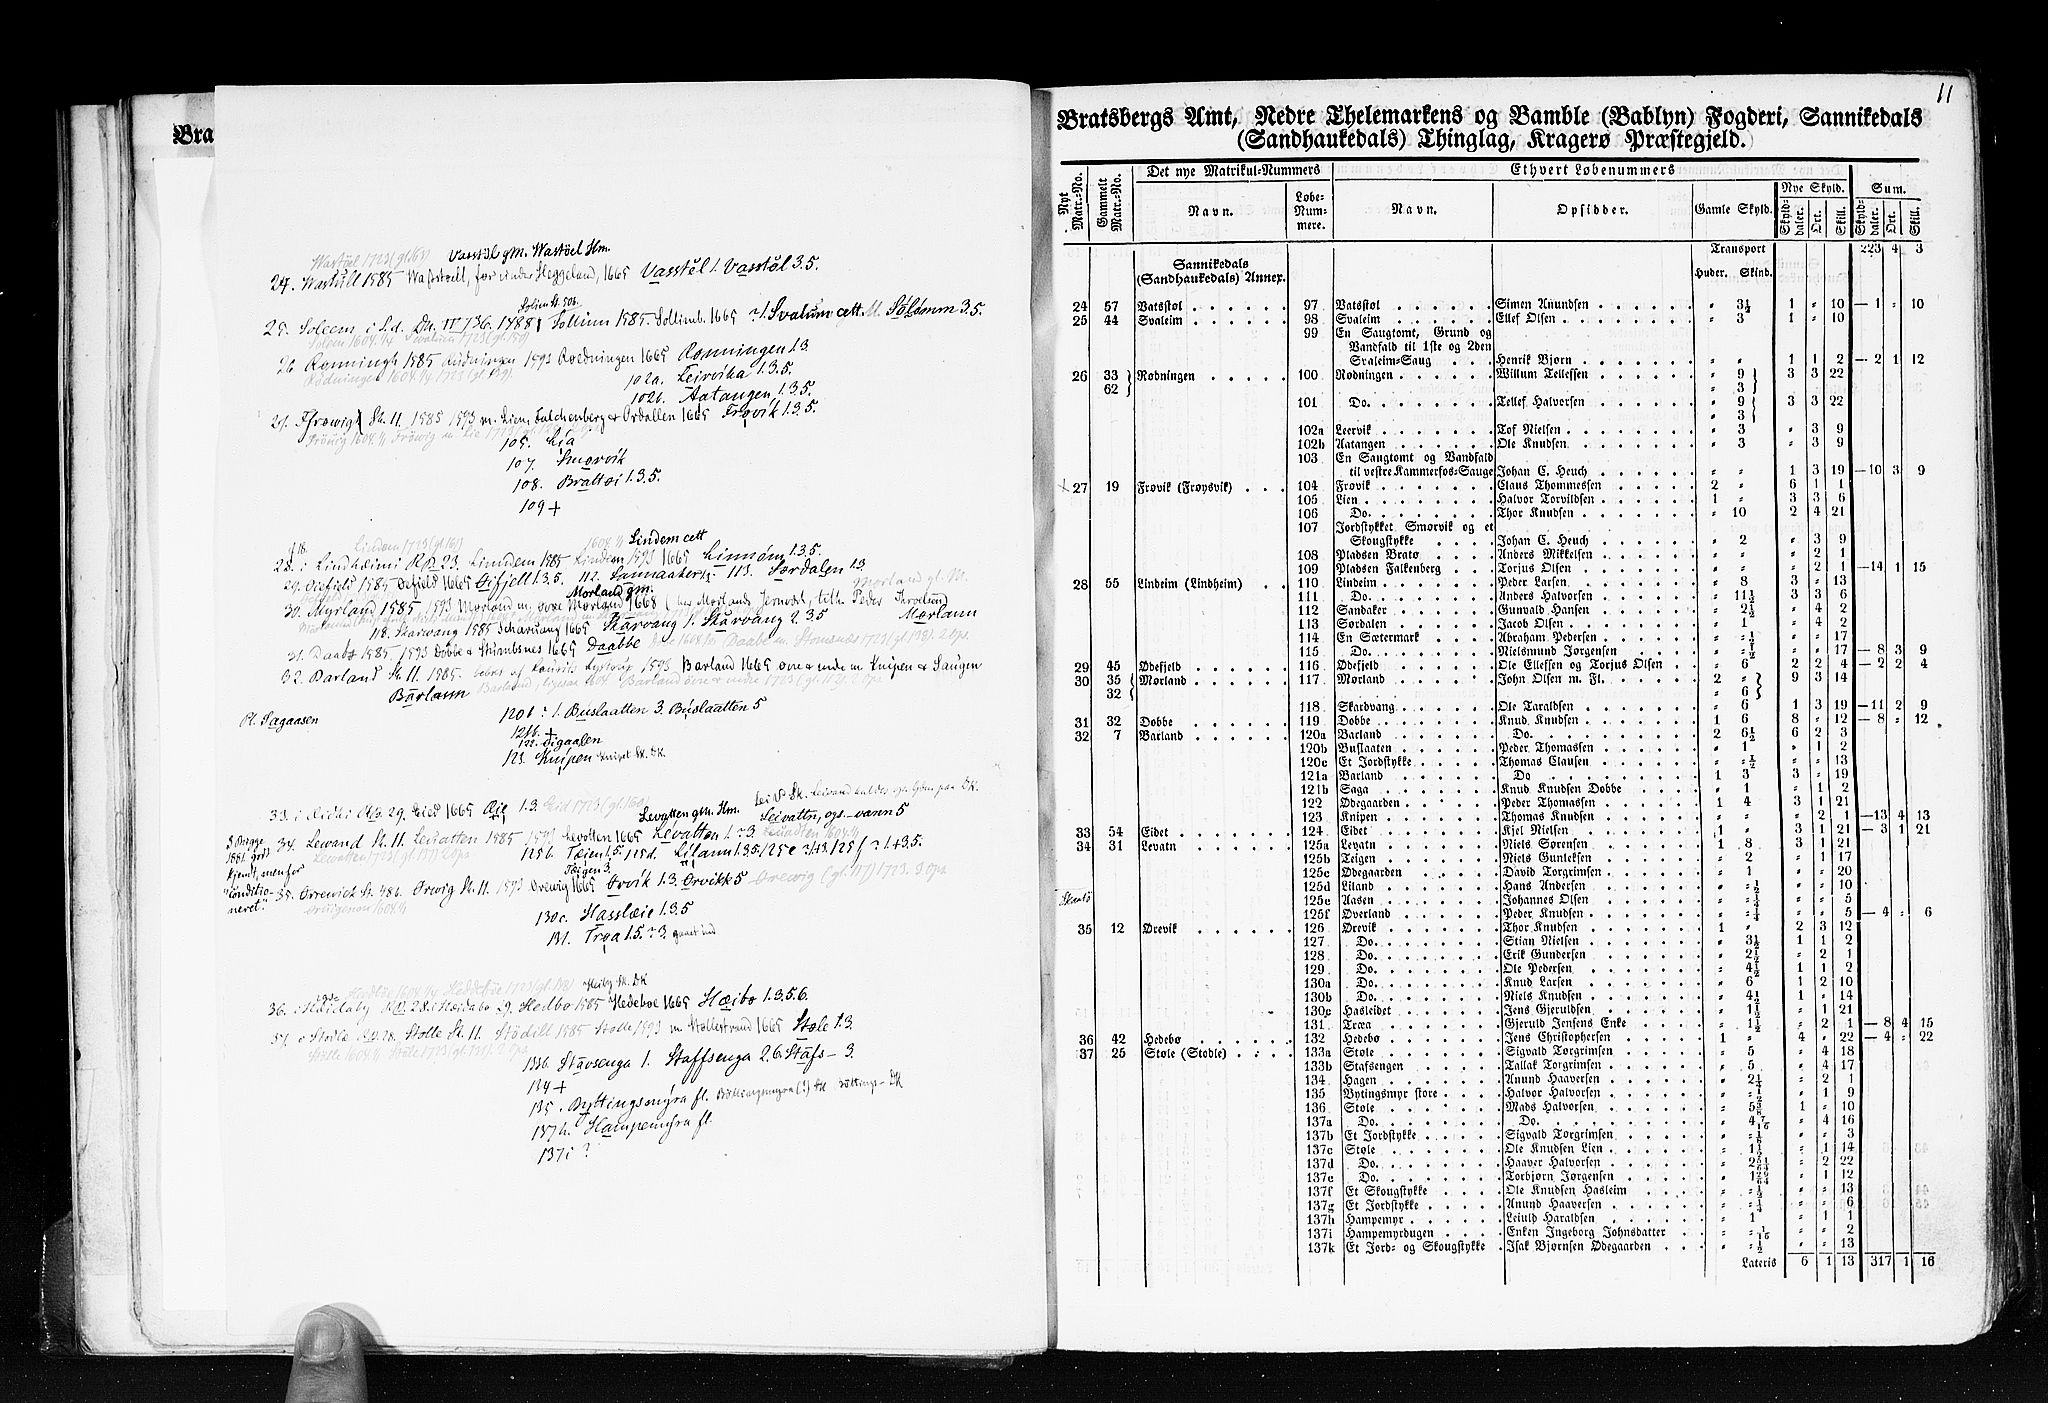 Bra
Wastøel 1723 (gl. 61) Vasstøl gM. Wastöel Hm.
24. Wastull 1585 Waststoell, før under Heggeland, 1665 Vasstøl 1. Vasstøl 3.5.
Solium St. 50b.
25. Soleem, i S.d. DN. IV 736. 1488. Sollium 1585 Sollimb. 1665 ? 1. Svalum cett. M. Sölömm 3.5.
Solem 1604 1/4 Sevalum 1723 (gl. 150)
26 Rønningh 1585 Rudningen 1593 Roedningen 1665 Rønningen 1.3
Rødningen 1604 1/4 1723 (gl. 139).
102a. Leirvika 1.3.5.
102b. Aatangen 1.3.5.
27. Frøwig St. 11. 1585 1593 m. Lien, Falchenberg & Ordallen 1665 Frøvik 1.3.5.
105. Lia
107. Smørvik
108. Brattøi 1.3.5.
109 +
Lindem 1723 (gl. 160) 1604 1/4 Lindem cett
28. i Lindhæimi RB 23. Linndem 1585 Lindem 1593 1665 Linnömm 1.3.5.
29. Oiefield 1585 Oefield 1665 Øifjell 1.3.5. 112. Sannaaker 113. Sørdalen 1.3
Mørland gM. Mørland gl. M.
30. Myrland 1585, 1593 Mörland m. øvre Mörland 1668 (her Mørlands Jernverk, tilh. Peder
118. Skarwang 1585 Scharuang 1665 Skarvang 1. Skarvang 2.3.5 Mørlann
31. Daabo 1585 1593 Dobbe & Stumbsnes 1665 Daabbe
32. Barland St. 11. 1585. 1593 Barland 1665 øvre & nedre m Knipen & Saugen
Barlann
Pl. Sagaasen
120b : 1. Buslaatten 3. Buslaatten 5
121b. +
122. Øigaalen
123. Knipen Knipet Sk. DK.
33. i Æidhi RB. 29. Eied 1665 Eie, 1.3. Eid 1723 (gl. 160)
Levatten gM. Hm.
Leivattn, ogs. -vann 5
34. Lewand St. 11. Leuatten 1585 1593 Levatten 1665 Levatten 1. ? 3.
S Brygge
1881. godt
kjendt, men for
"conditio-
neret".
125b. Tæien 1.5. 125d. Lilann 1.3.5. 125e ? 1.3. 125f ? 1. +3.5.
Tæigen 3.
35. Orrewick St. 48b. Orwig St. 11. 1593 Orewig 1665 Ørvik 1.3. Ørvikk 5 Orewig (gl. 117) 1723. 2 Ops
130c. Hassleie 1.3.5
131. Trøa 1.5. ? 3. gaaet ind
Heiby Sk. DK
36. RB. 28. i Heidabø 29. Hedbo 1585 Hedeboe 1665 Hæibø 1.3.5.6.
37. a Stodle RB 28. Stolle St. 11 Stödell 1585 Stolle 1593 m Stollestrand 1665 Støle 1.3.
133b. Stavsenga 1. Staffsenga 2.6. Stafs- 3.
134 +
135. Byttingsmyra fl.
137h. Hampemyra fl.
137i ?
11
Bratsbergs Amt, Nedre Thelemarkens og Bamble (Bablyn) Fogderi, Sannikedals
(Sandhaukedals) Thinglag, Kragerø Præstegjeld.
Nyt Matr.-No. Gammelt Matr.-No. Det nye Matrikul-Nummers Ethvert Løbenummers
Navn. Løbe-Nummere. Navn. Opsidder. Gamle Skyld. Nye Skyld. Sum.
Skylddaler. Ort. Skill. Skylddaler. Ort. Skill.
Transport 223 4 3
Sannikedals (Sandhaukedals) Annex. Huder. Skind.
24 57 Vatstøl 97 Vatstøl Simen Anundsen " 3½ 1 " 10 — 1 " 10
25 44 Svaleim 98 Svaleim Ellef Olsen " 3 1 " 10
99 En Saugtomt, Grund og
Vandfald til 1ste og 2den
Svaleim-Saug Henrik Bjørn " " 1 1 2 — 2 1 12
26 33 } Rødningen 100 Rødningen Willum Tellefsen " 9 } 3 3 22
62 } " 3 }
101 Do. Tellef Halvorsen " 9 } 3 3 22
" 3 }
102a Leervik Tof Nielsen " 3 " 3 9
102b Aatangen Ole Knudsen " 3 " 3 9
103 En Saugtomt og Vandfald
til vestre Kammerfos-Sauge Johan C. Heuch " " 1 3 19 — 10 3 9
27 19 Frøvik (Frøysvik) 104 Frøvik Claus Thommesen 2 " 6 1 1
105 Lien Halvor Torvildsen 1 " 3 3 6
106 Do. Thor Knudsen " 10 2 4 21
107 Jordstykket Smørvik og et
Skougstykke Johan C. Heuch " 2 " 3 9
108 Pladsen Bratø Anders Mikkelsen " " " 2 1
109 Pladsen Falkenberg Torjus Olsen " " " 2 1 — 14 1 15
28 55 Lindeim (Lindheim) 110 Lindeim Peder Larsen " 8 3 " 13
111 Do. Anders Halvorsen " 11½ 3 3 6
112 Sandaker Gunvald Hansen " 2½ " 4 2
113 Sørdalen Jacob Olsen " 1 " 4 2
114 En Sætermark Abraham Pedersen " ½ " " 17
115 Do. Nielsmund Jørgensen " ½ " " 17 — 8 3 9
29 45 Ødefjeld 116 Ødefjeld Ole Ellefsen og Torjus Olsen " 6 2 2 4 — 2 2 4
30 35 } Mørland 117 Mørland John Olsen m. Fl. 2 " } 9 3 14
32 } " 6 }
118 Skardvang Ole Taraldsen " 6 1 3 19 — 11 2 9
31 32 Dobbe 119 Dobbe Knud Knudsen 1 6 8 " 12 — 8 " 12
32 7 Barland 120a Barland Do. 2 6½ 6 2 3
120b Buslaaten Peder Thomassen " 1 " 1 2
120c Et Jordstykke Thomas Clausen " ½ " " 13
121a Barland Do 1 3 3 " 19
121b Saga Knud Knudsen Dobbe " 1 " 1 2
122 Ødegaarden Peder Thomassen 1 4 3 1 21
123 Knipen Thomas Knudsen " " " 2 1 — 13 4 13
33 54 Eidet 124 Eidet Kjel Nielsen 1 " 3 1 21 — 3 1 21
34 31 Levatn 125a Levatn Niels Sørensen 1 8 3 1 21
125b Teigen Niels Gunleksen " 2 " 1 17
125c Ødegaarden David Torgrimsen " 1 " " 20
125d Liland Hans Andersen " ½ " " 10
Skaatø 125e Aasen Johannes Olsen " ¼ " " 5
125f Overland Peder Knudsen " ¼ " " 5 — 4 " 6
35 12 Ørevik 126 Ørevik Thor Knudsen 1 " 2 3 12
127 Do. Stian Nielsen " 3½ 1 1 2
128 Do. Erik Gundersen " 2½ " 2 1
129 Do. Ole Pedersen " 4½ 1 1 2
130a Do. Knud Larsen " 6 1 2 10
130b Do. Niels Knudsen " 4½ 1 " 14
130c Hasleidet Jens Gjeruldsen " 1½ " 1 21
131 Træa Gjeruld Jensens Enke " 1½ " 2 1 — 8 4 15
36 42 Hedebø 132 Hedebø Jens Christophersen 1 " 4 " 22 — 4 " 22
37 25 Støle (Stødle) 133a Støle Sigvald Torgrimsen " 5 " 4 18
133b Stafsengen Tallak Torgrimsen " 5 " 4 17
134 Hagen Anund Haaversen " 2¼ " 2 1
135 Bytingsmyr store Halvor Halvorsen " ½ " 1 9
136 Støle Mads Halvorsen " 5⅜ 1 " 10
137a Do. Do. " 4 7/16 " 4 16
137b Et Jordstykke Sigvald Torgrimsen " ⅛ " " 3
137c Støle Ole Knudsen Lien " 1½ " 1 14
137d Do. Haaver Halvorsen " 2 51/64 " 2 22
137e Do. Torbjørn Jørgensen " 1 29/64 " 1 12
137f Et Skougstykke Ole Knudsen Hasleim " ½ " " 13
137g Et Jordstykke Anund Haaversen " ¼ " " 6
137h Hampemyr Leiuld Haraldsen " 1 " 1 1
137i Hampemyrbugen Enken Ingeborg Johnsdatter " 1/16 " " 2
137k Et Jord- og Skougstykke Isak Bjørnsen Ødegaarden " ½ " " 13
Lateris 6 1 13 317 1 16